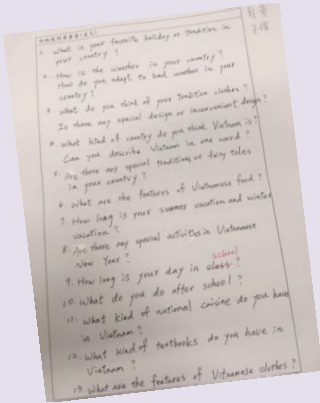 1. What is your favorite holiday or tradition in
your country ?
2. How is the weather in your country ?
How do you adapt to bad weather in your
country ?
3. What do you think of your Tradition clothes ?
Is there any special design or inconvenient design ?
4. What kind of country do you think Vietnam is ?
Can you describe Vietnam in one word ?
5. Are there any special traditions or fairy tales
in your country ?
6. What are the features of Vietnamese food ?
7. How long is your summer vacation and winter
vacation ?
8. Are there any special activities in Vietnamese
New Year ?
school
9. How long is your day in class ?
10. What do you do after school ?
11. What kind of national cuisine do you have
in Vietnam ?
12. What kind of textbooks do you have in
Vietnam ?
13. What are the features of Vietnamese clothes ?